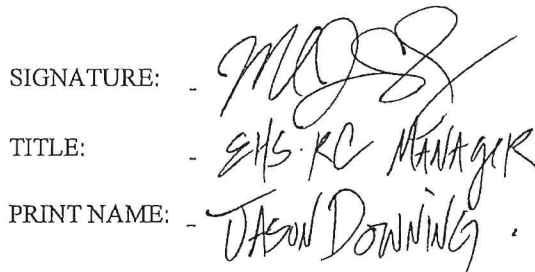 SIGNATURE: -
TITLE: - EHS-RC MANAGER
PRINT NAME: - JASON DOWNING.